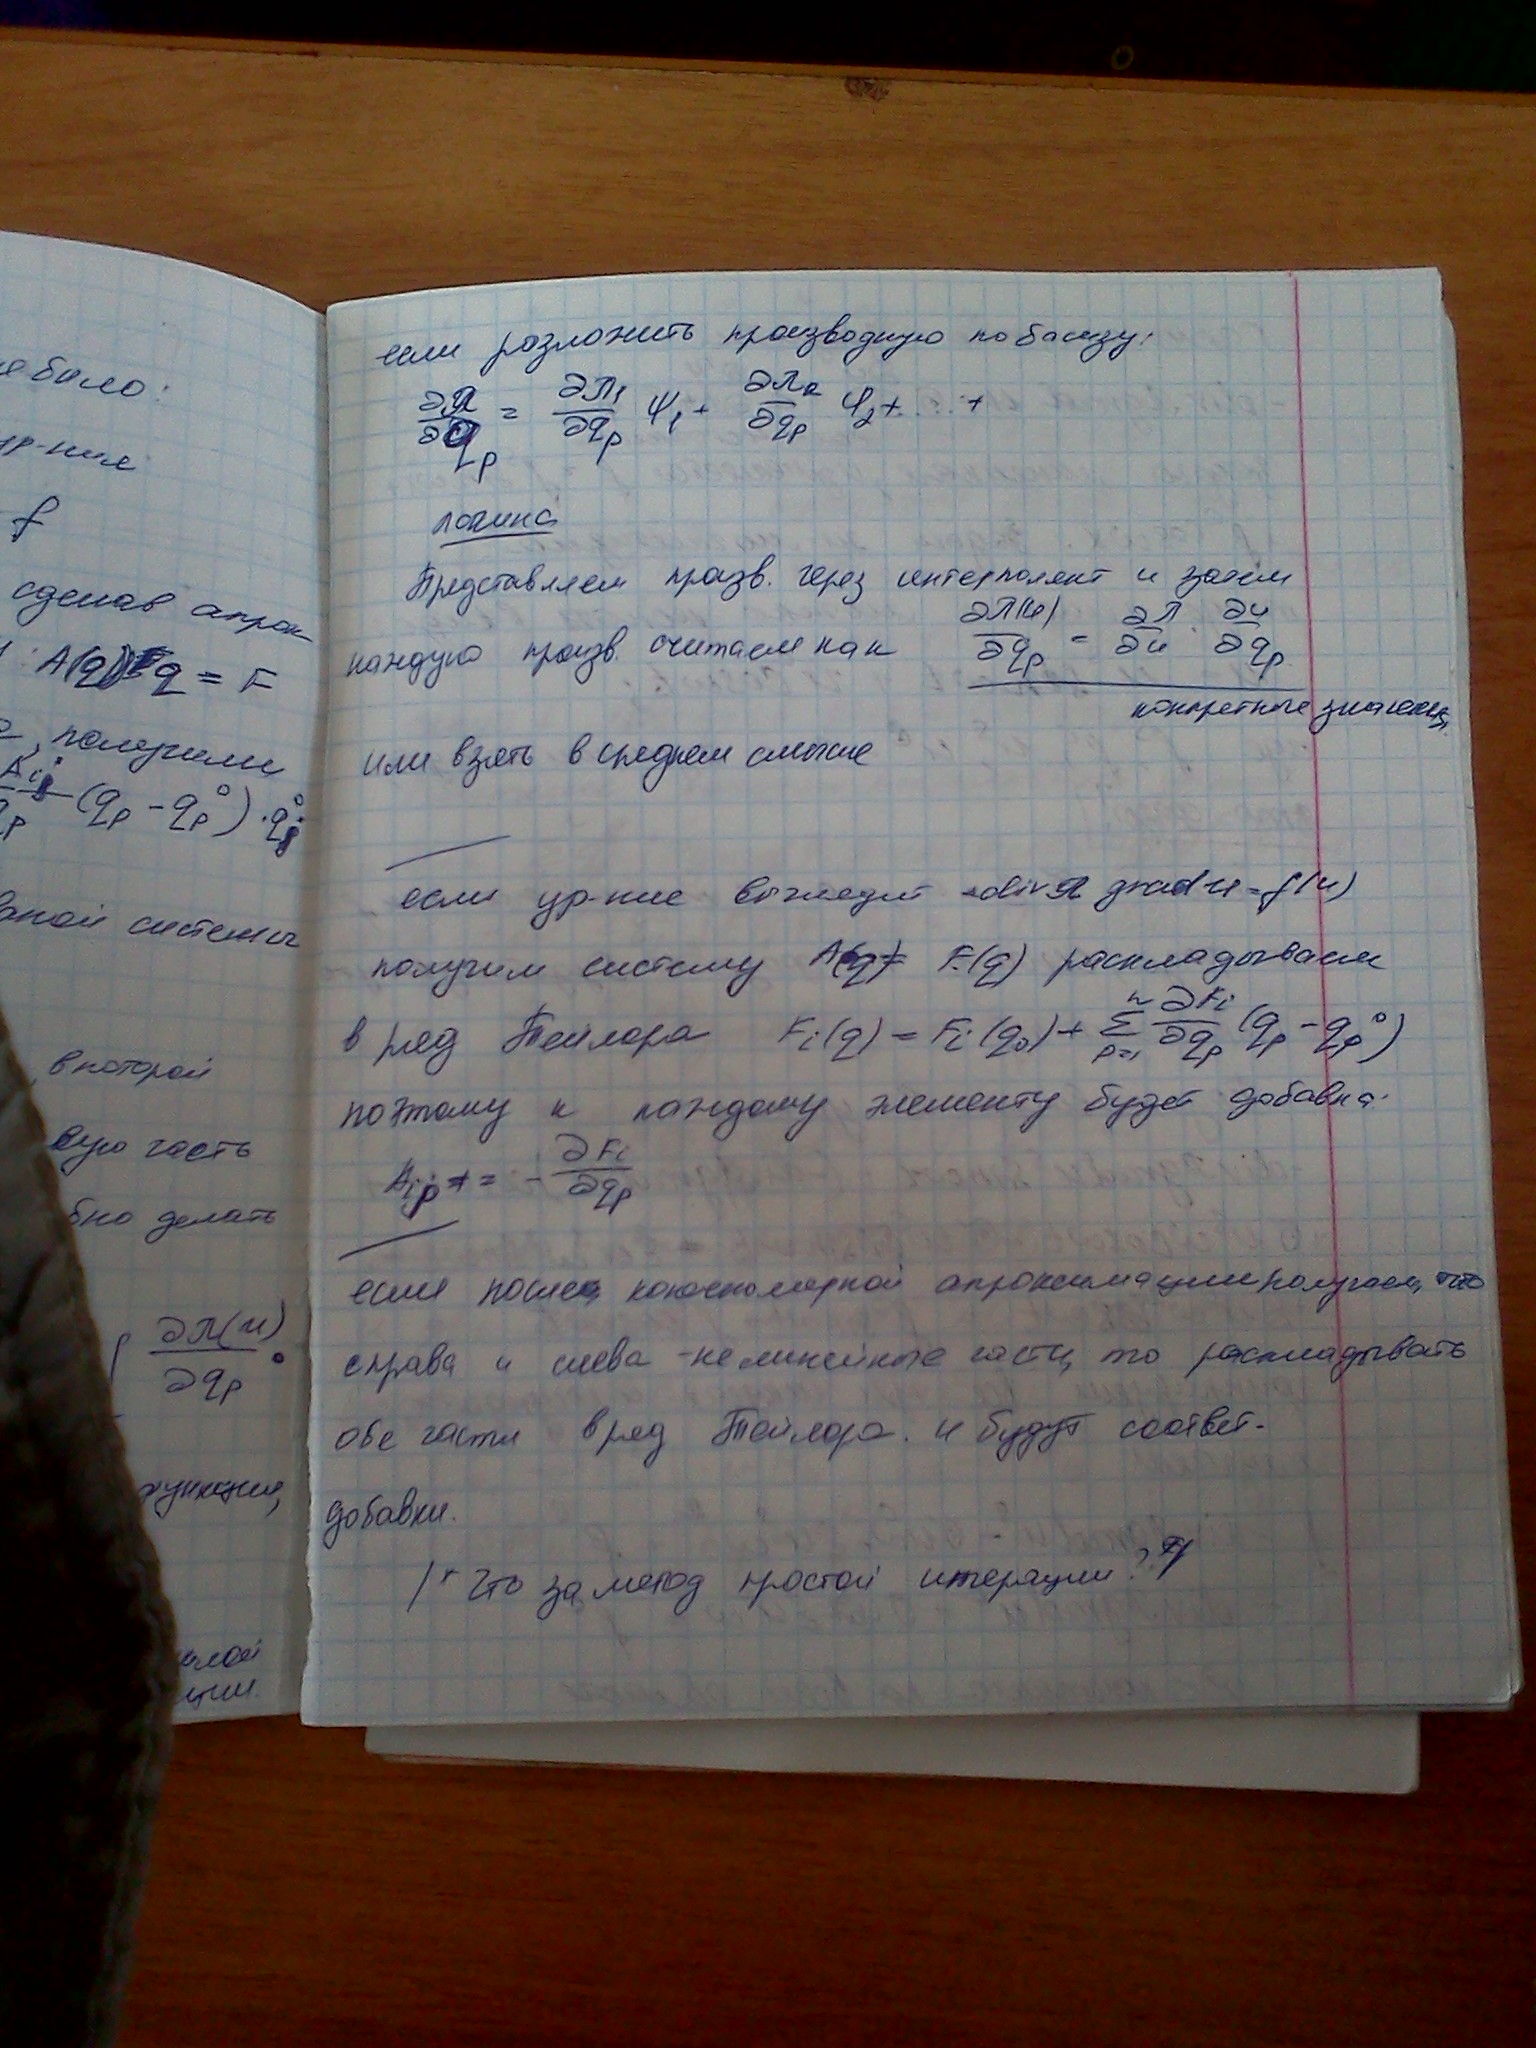 е было:
ур-ния
f
сделав апрок
A(q) q = F
, получили
(q_p - q_p^0) · q_j^0
системы
в которой
вую часть
бно делать
∂λ(u)/∂q_p
функция,
если разложить производную по базису:
∂λ/∂q_p = ∂λ_1/∂q_p ψ_1 + ∂λ_2/∂q_p ψ_2 + ... +
логика
Представляем произв. через интерполянт и затем
каждую произв. считаем как ∂λ(u)/∂q_p = ∂λ/∂u · ∂u/∂q_p
конкретные значения
или взять в среднем смысле
если ур-ние выглядит -div λ grad u = f(u)
получим систему A(q) = F(q) раскладываем
в ряд Тейлора F_i(q) = F_i(q_0) + Σ_{p=1}^{n} ∂F_i/∂q_p (q_p - q_p^0)
поэтому к каждому элементу будет добавка:
A_ip += - ∂F_i/∂q_p
если после конечномерной апроксимации получаем, что
справа и слева - нелинейные части, то раскладывать
обе части в ряд Тейлора. и будут соответ.
добавки.
/* Что за метод простой итерации? */